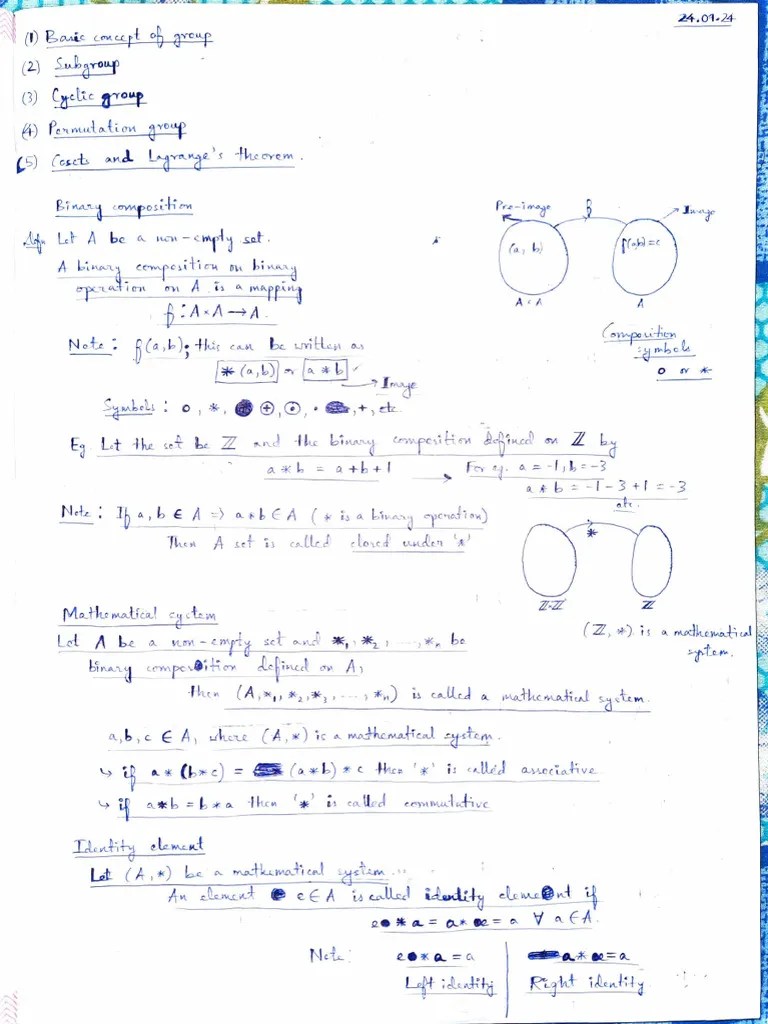 24.09.24
(1) Basic concept of group
(2) Subgroup
(3) Cyclic group
(4) Permutation group
(5) Cosets and Lagrange's theorem.
Binary composition
Defn Let A be a non-empty set.
A binary composition on binary
operation on A is a mapping
f : A×A → A.
Pre-image f Image
(a, b) f(a,b)=c
A×A A
Note: f(a,b); this can be written as
*(a,b) or a * b
→ Image
Composition
symbols
o or *
Symbols : o, *, ⊕, ⊙, ·, +, etc
Eg. Let the set be ℤ and the binary composition defined on ℤ by
a * b = a+b+1 → For eg. a = -1, b = -3
a * b = -1-3+1 = -3
etc.
Note: If a, b ∈ A => a*b ∈ A (* is a binary operation)
Then A set is called closed under '*'
*
ℤ×ℤ ℤ
(ℤ, *) is a mathematical
system.
Mathematical system
Let A be a non-empty set and *₁, *₂, ...., *ₙ be
binary composition defined on A,
then (A, *₁, *₂, *₃, ...., *ₙ) is called a mathematical system.
a, b, c ∈ A, where (A, *) is a mathematical system.
↳ if a * (b * c) = (a * b) * c then '*' is called associative
↳ if a * b = b * a then '*' is called commutative
Identity element
Let (A, *) be a mathematical system.
An element e ∈ A is called identity element if
e * a = a * e = a ∀ a ∈ A.
Note: e * a = a | a * e = a
Left identity | Right identity